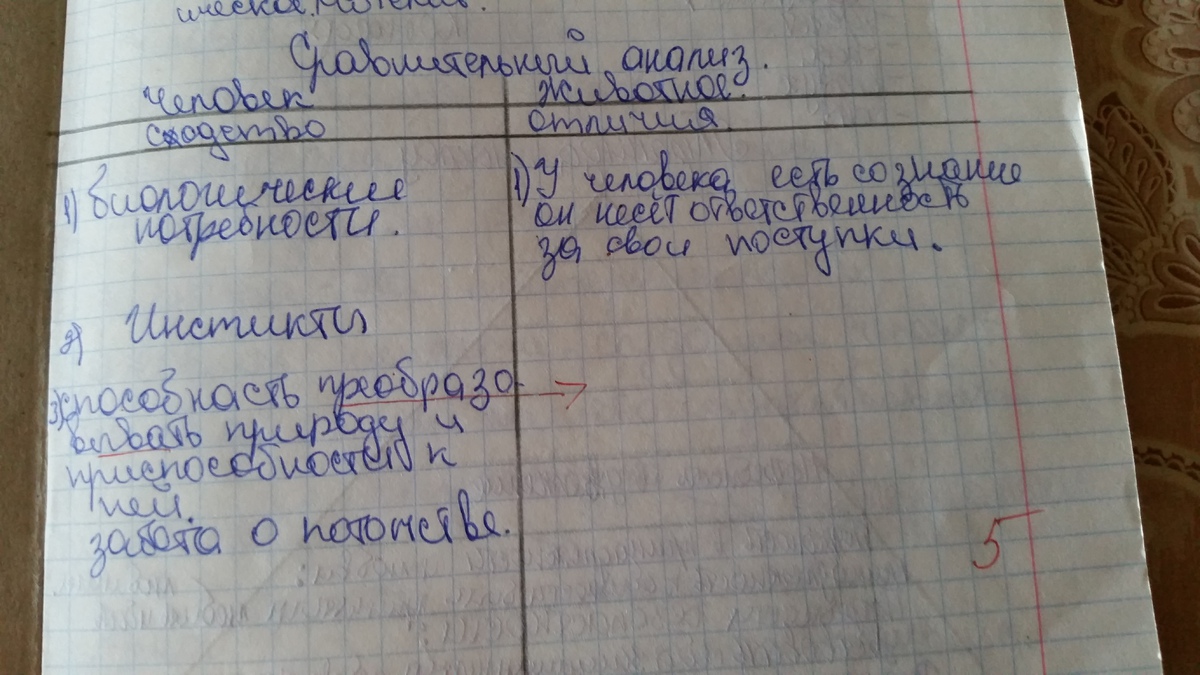 Сравнительный анализ.
Человек
Животное.
Сходство
отличия.
1) биологические
потребности.
2) Инстикты
3) способнасть преобразо-
вывать природу и
приспособиться к
ней.
забота о потомстве.
1) У человека есть сознание
он несёт ответственность
за свои поступки.
5